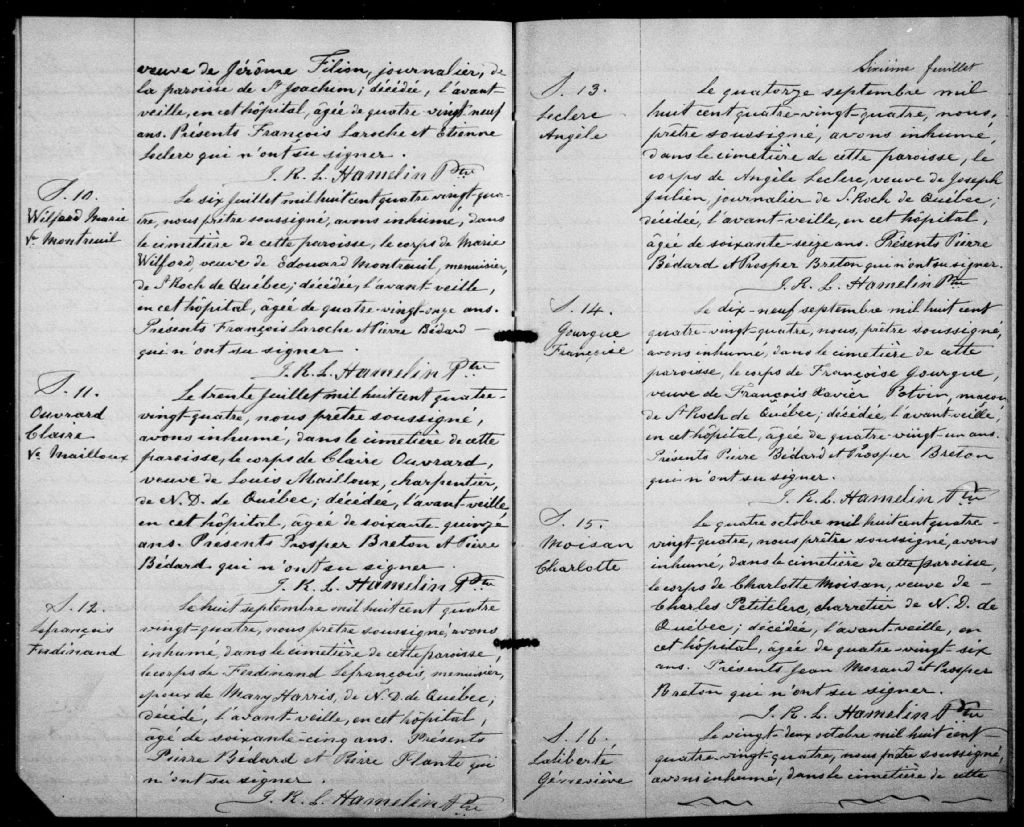 veuve de Jérôme Filion, journalier, de
la paroisse de St Joachim; décédée, l'avant
veille, en cet hôpital, âgée de quatre vingt neuf
ans. Présents François Laroche et Etienne
Leclerc qui n'ont su signer.
J. R. L. Hamelin Ptre
S. 10.
Wilford Marie
Ve Montreuil
Le six juillet mil huit cent quatre vingt-qua-
tre, nous prêtre soussigné, avons inhumé, dans
le cimetière de cette paroisse, le corps de Marie
Wilford, veuve de Edouard Montreuil, menuisier,
de St Roch de Québec; décédée, l'avant veille,
en cet hôpital, âgée de quatre-vingt-onze ans.
Présents François Laroche et Pierre Bédard -
qui n'ont su signer.
J. R. L. Hamelin Ptre
S. 11.
Ouvrard
Claire
Ve Mailloux
Le trente juillet mil huit cent quatre-
vingt-quatre, nous prêtre soussigné,
avons inhumé, dans le cimetière de cette
paroisse, le corps de Claire Ouvrard,
veuve de Louis Mailloux, charpentier,
de N. D. de Québec; décédée, l'avant-veille,
en cet hôpital, âgée de soixante-quinze
ans. Présents Prosper Breton et Pierre
Bédard qui n'ont su signer.
J. R. L. Hamelin Ptre
S. 12.
Lefrançois
Ferdinand
Le huit septembre mil huit cent quatre
vingt-quatre, nous prêtre soussigné, avons
inhumé, dans le cimetière de cette paroisse,
le corps de Ferdinand Lefrançois, menuisier,
époux de Mary Harris, de N. D. de Québec;
décédé, l'avant-veille, en cet hôpital,
âgé de soixante-cinq ans. Présents
Pierre Bédard et Pierre Plante qui
n'ont su signer.
J. R. L. Hamelin Ptre
Sixième feuillet
S. 13.
Leclerc
Angèle
Le quatorze septembre mil
huit cent quatre-vingt-quatre, nous,
prêtre soussigné, avons inhumé
dans le cimetière de cette paroisse, le
corps de Angèle Leclerc, veuve de Joseph
Julien, journalier de St. Roch de Québec;
décédée, l'avant-veille, en cet hôpital,
âgée de soixante-seize ans. Présents Pierre
Bédard et Prosper Breton qui n'ont su signer.
J. R. L. Hamelin Ptre
S. 14.
Gourgue
Françoise
Le dix-neuf septembre mil huit cent
quatre-vingt-quatre, nous, prêtre soussigné,
avons inhumé, dans le cimetière de cette
paroisse, le corps de Françoise Gourgue,
veuve de François Xavier Potvin, maçon
de St Roch de Québec; décédée, l'avant-veille,
en cet hôpital, âgée de quatre-vingt-un ans.
Présents Pierre Bédard et Prosper Breton
qui n'ont su signer.
J. R. L. Hamelin Ptre
S. 15.
Moisan
Charlotte
Le quatre octobre mil huit cent quatre-
vingt-quatre, nous prêtre soussigné, avons
inhumé, dans le cimetière de cette paroisse,
le corps de Charlotte Moisan, veuve de -
Charles Petitclerc, charretier de N. D. de
Québec; décédée, l'avant-veille, en
cet hôpital, âgée de quatre-vingt-six
ans. Présents Jean Morand et Prosper
Breton qui n'ont su signer.
J. R. L. Hamelin Ptre
S. 16.
Laliberté
Génneviève
Le vingt deux octobre mil huit cent-
quatre-vingt-quatre, nous prêtre soussigné,
avons inhumé, dans le cimetière de cette